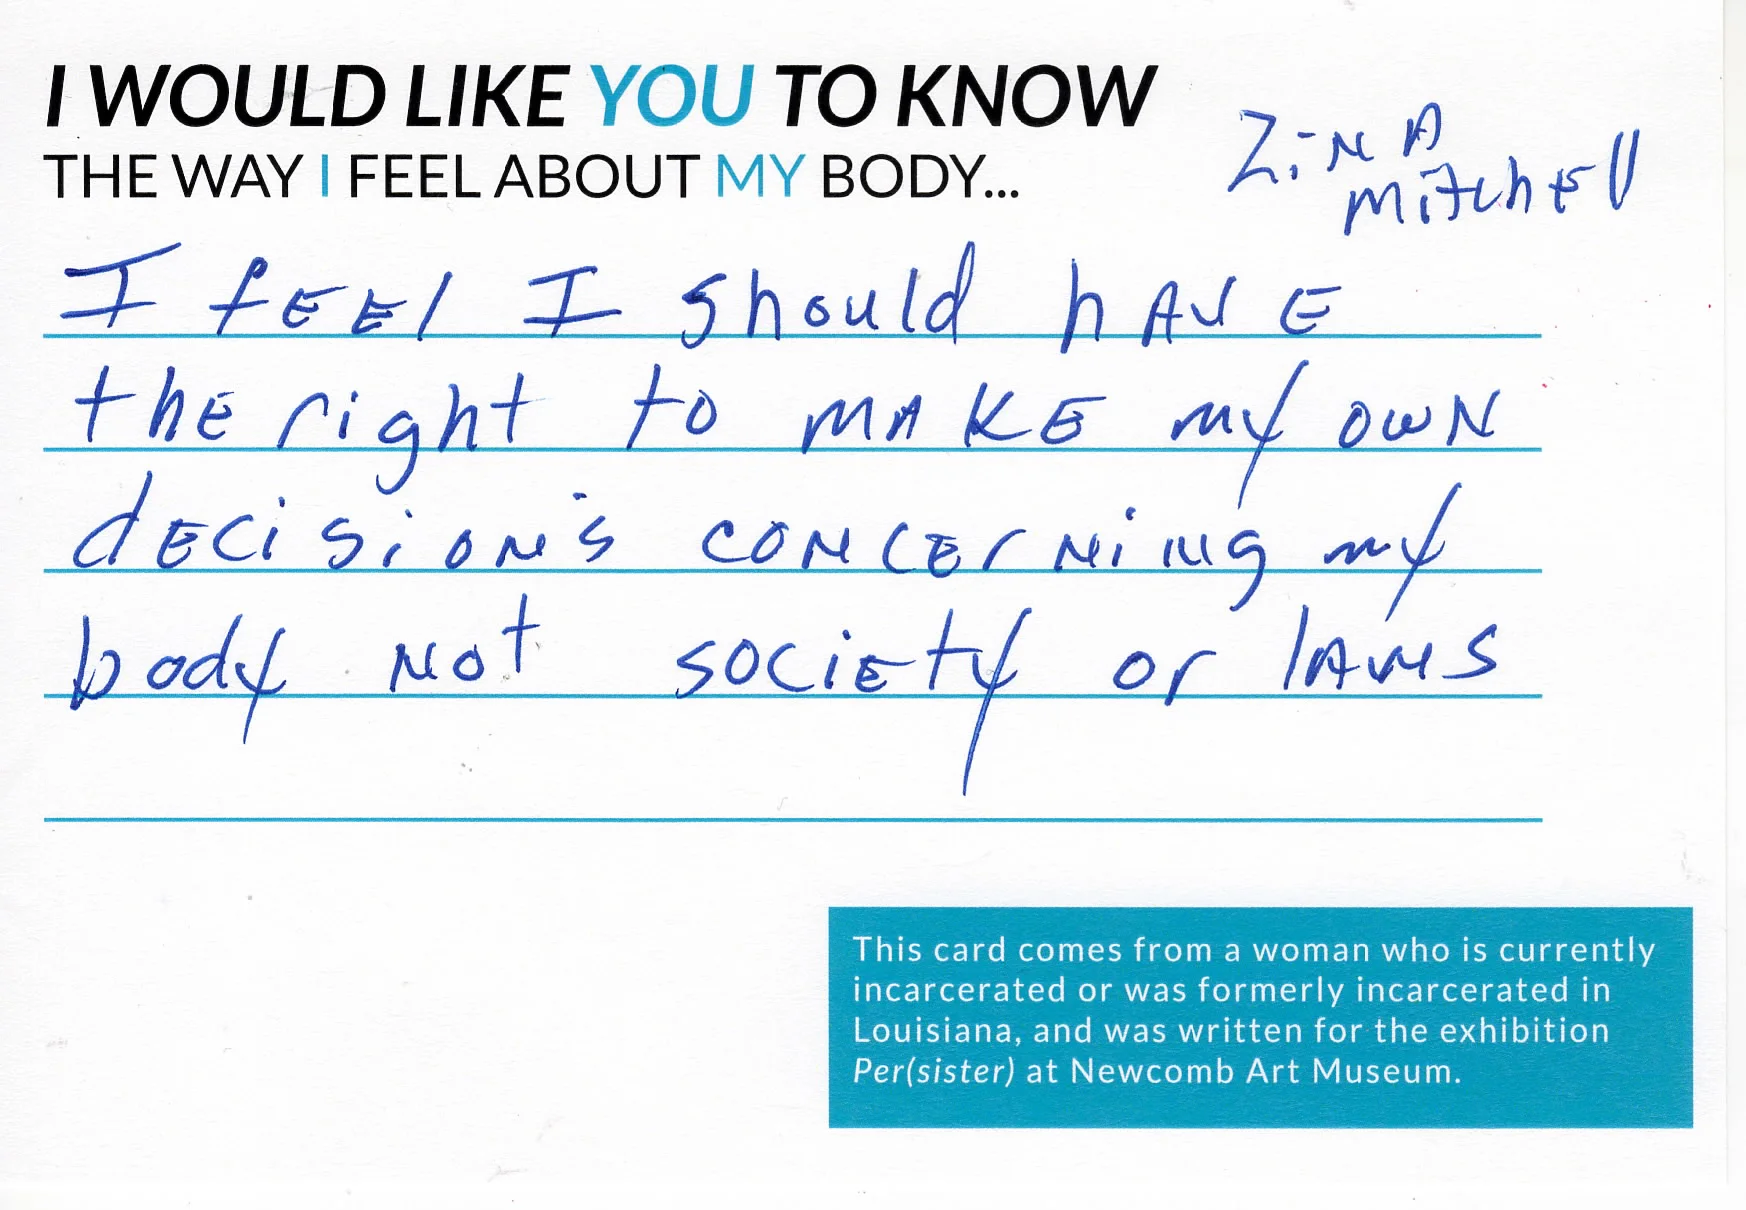 I WOULD LIKE YOU TO KNOW
THE WAY I FEEL ABOUT MY BODY...
Zina
Mitchell
I feel I should have
the right to make my own
decision's concerning my
body not society or laws
This card comes from a woman who is currently
incarcerated or was formerly incarcerated in
Louisiana, and was written for the exhibition
Per(sister) at Newcomb Art Museum.